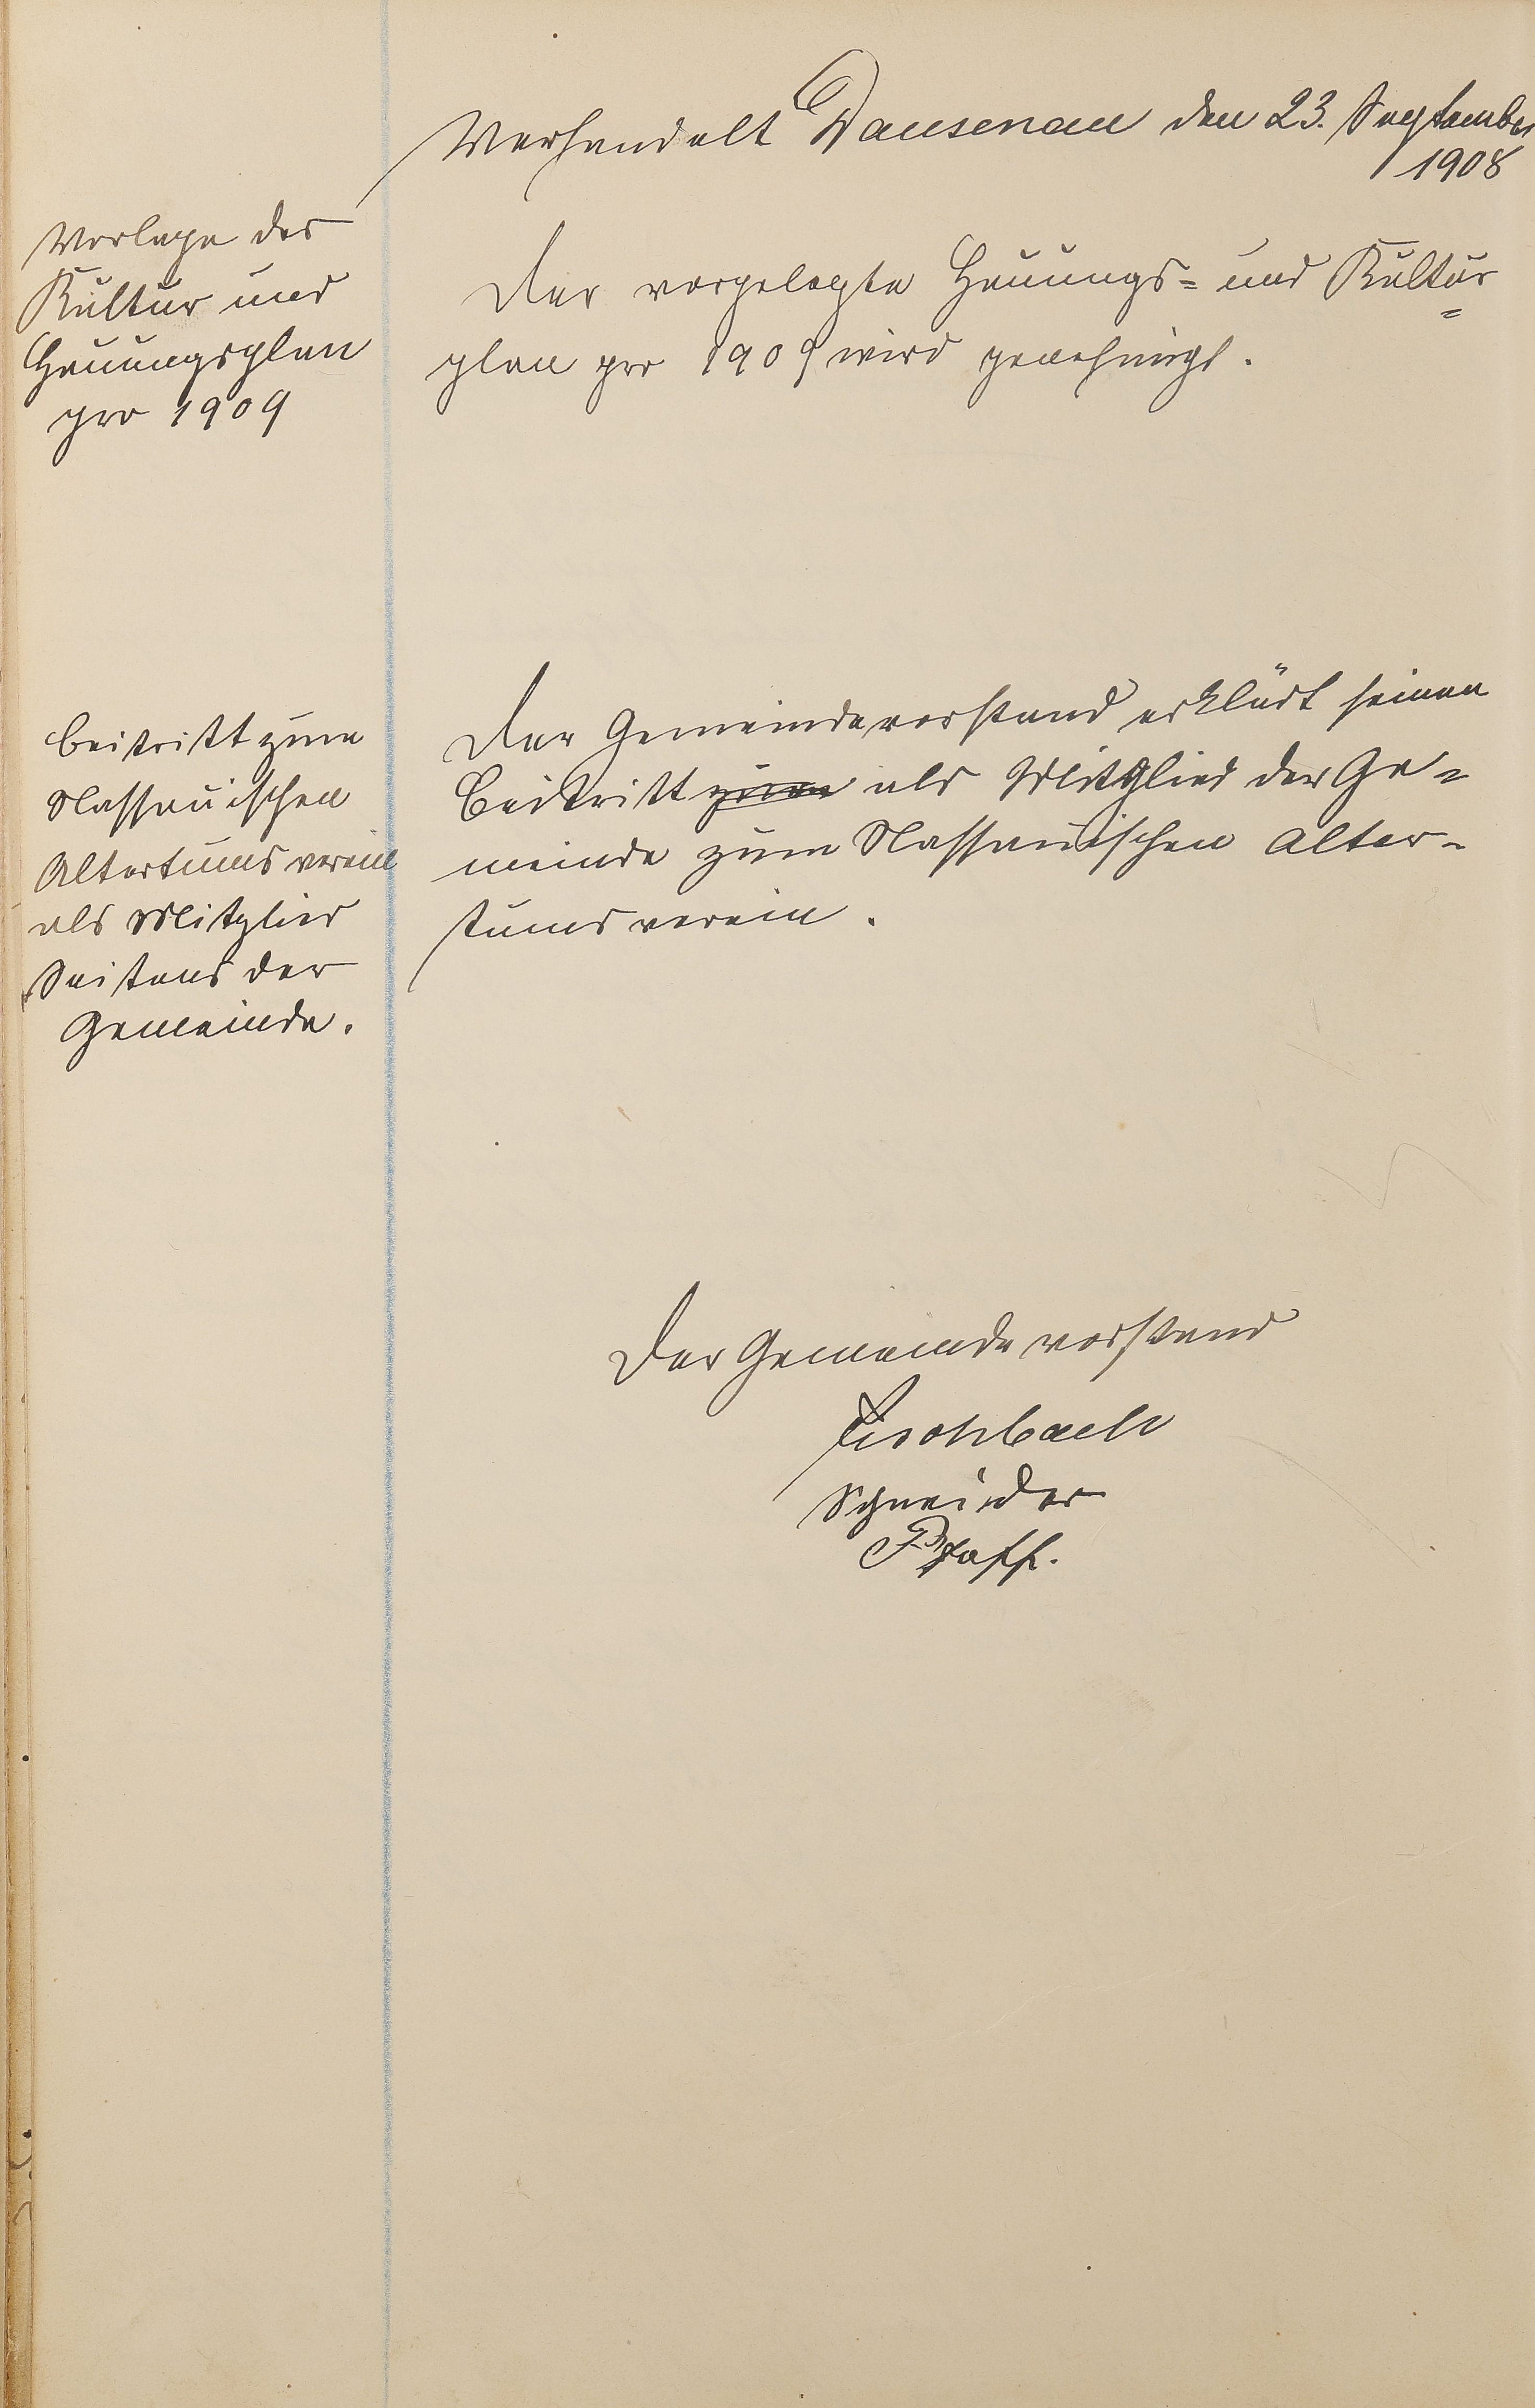 Verhandelt Dausenau den 23. September
1908
Vorlage des
Kultur und
Hauungsplan
pro 1909
Der vorgelegte Hauungs= und Kultur=
plan pro 1909 wird genehmigt.
Beitritt zum
Nassauischen
Altertumsverein
als Mitglied
Seitens der
Gemeinde.
Der Gemeindevorstand erklärt seinen
Beitritt zum als Mitglied der Ge=
meinde zum Nassauischen Alter=
tumsverein.
Der Gemeindevorstand
Fischbach
Schneider
Pfaff.